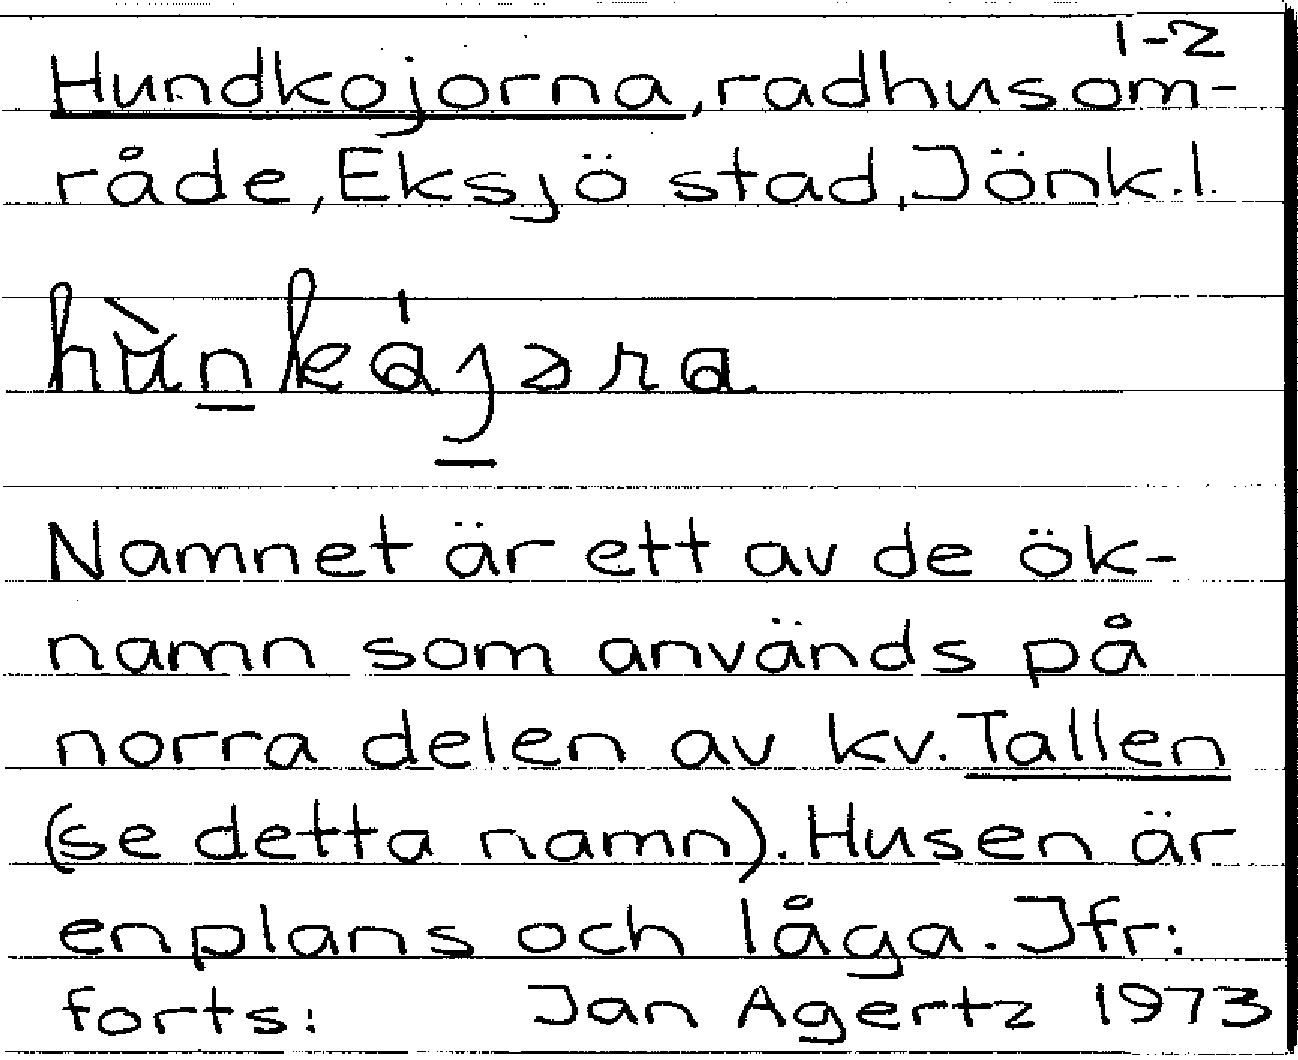 1-2
Hundkojorna, radhusom-
råde, Eksjö stad, Jönk.l.
hùnkåjəra
Namnet är ett av de ök-
namn som används på
norra delen av kv. Tallen
(se detta namn). Husen är
enplans och låga. Jfr:
forts: Jan Agertz 1973